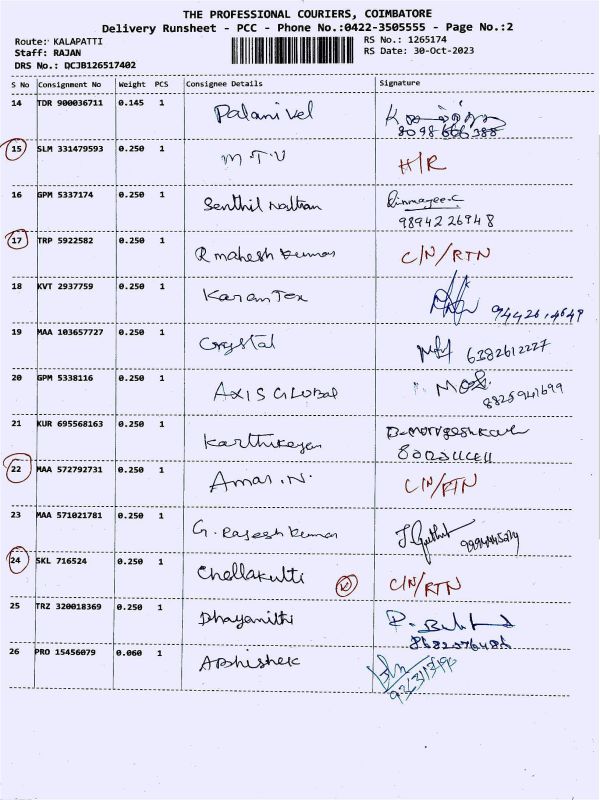 THE PROFESSIONAL COURIERS, COIMBATORE
Delivery Runsheet - PCC - Phone No.:0422-3505555 - Page No.:2
Route: KALAPATTI RS No.: 1265174
Staff: RAJAN RS Date: 30-Oct-2023
DRS No.: DCJB126517402
S No Consignment No Weight PCS Consignee Details Signature
14 TDR 900036711 0.145 1 Palanivel
8098 666 388
15 SLM 331479593 0.250 1 M T U H/R
16 GPM 5337174 0.250 1 Senthil Nathan
9894226948
17 TRP 5922582 0.250 1 R mahesh kumar C/N/RTN
18 KVT 2937759 0.250 1 Karan Tex
9442614649
19 MAA 103657727 0.250 1 Crystal 6382612227
20 GPM 5338116 0.250 1 AXIS GLOBAL
8825941699
21 KUR 695568163 0.250 1 Karthikeyan
22 MAA 572792731 0.250 1 Amar.N. C/N/RTN
23 MAA 571021781 0.250 1 G. Rajesh kumar
24 SKL 716524 0.250 1 Chellakutti C/N/RTN
25 TRZ 320018369 0.250 1 Dhayanithi
26 PRO 15456079 0.060 1 Abhishek